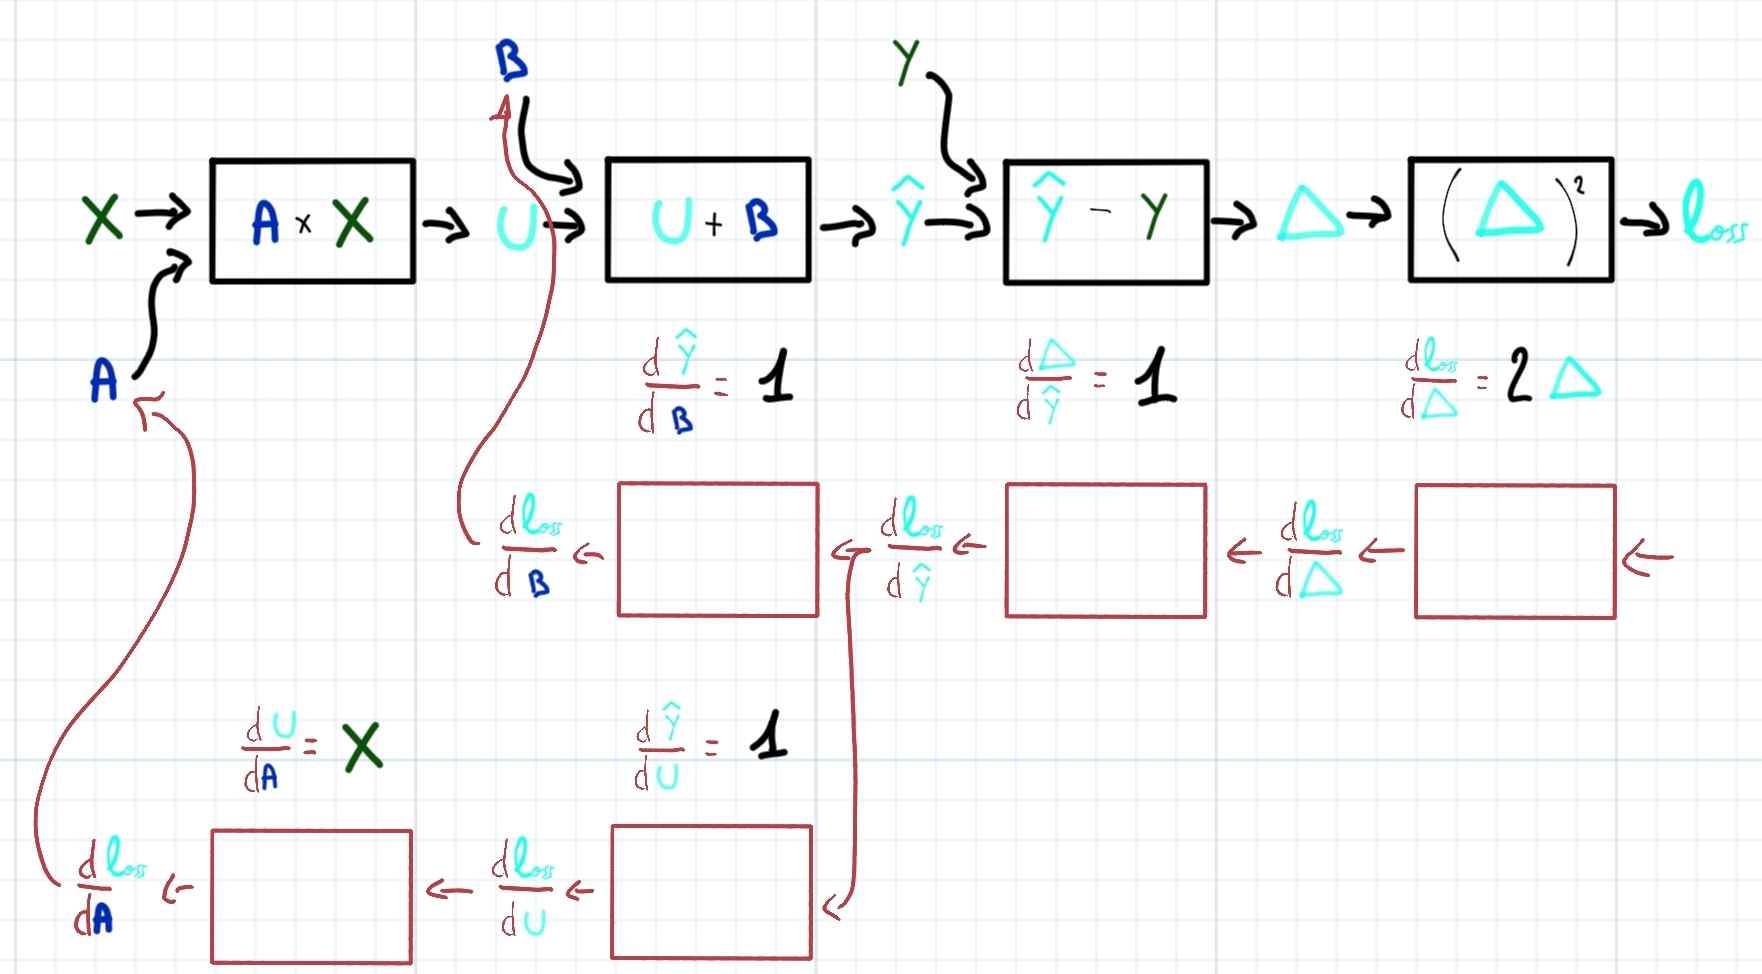 B
Y
X
A × X
U
U + B
Ŷ
Ŷ - Y
Δ
(Δ)²
loss
A
dŶ/dB = 1
dΔ/dŶ = 1
dloss/dΔ = 2Δ
dloss/dB
dloss/dŶ
dloss/dΔ
dU/dA = X
dŶ/dU = 1
dloss/dA
dloss/dU